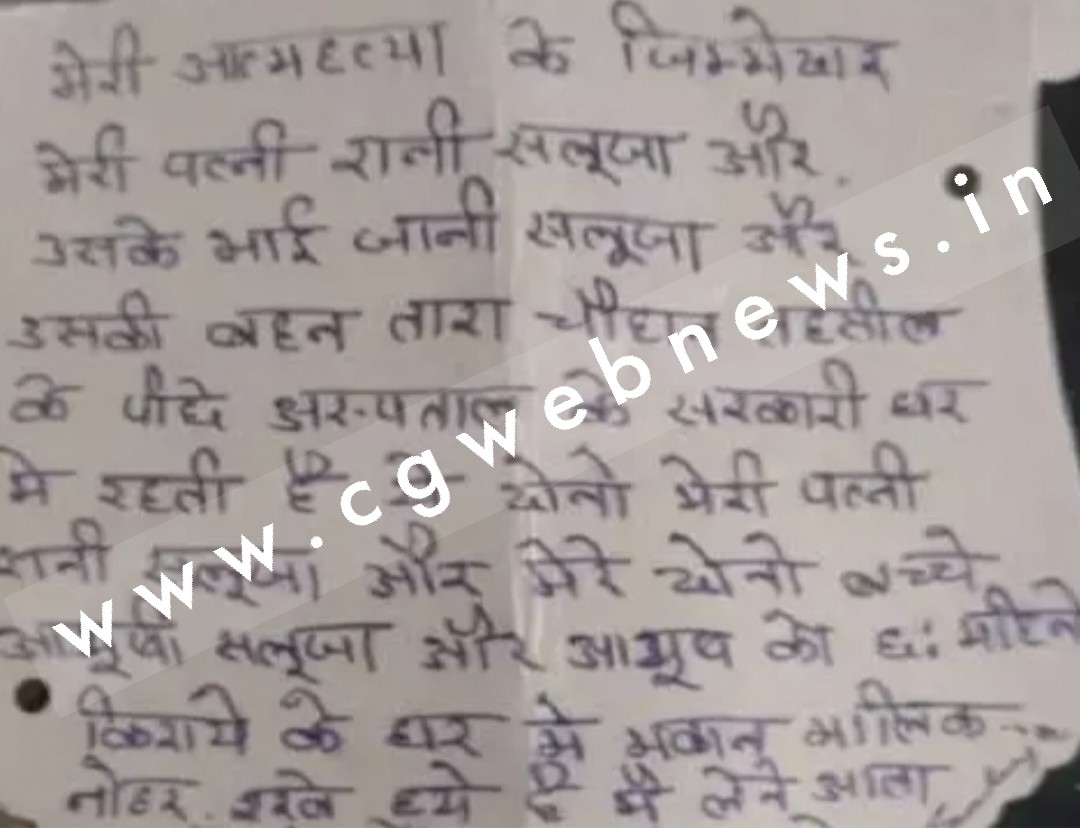 मेरी आत्महत्या के जिम्मेदार
मेरी पत्नी रानी सलूजा और.
उसके भाई जानी सलूजा और
उसकी बहन तारा चौहान तहसील
के पीछे अस्पताल के सरकारी घर
मे रहती है ये दोनो मेरी पत्नी
रानी सलूजा और मेरे दोनो बच्चे
सलूजा और आभूष को छ: महिने
किराये के घर मे मकान मालिक
नोहर. रखे हुये है मै लेने आता
www.cgwebnews.in